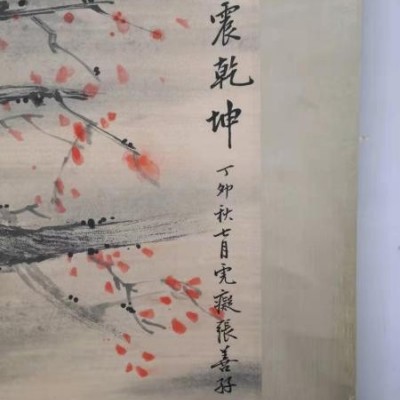 震乾坤
丁卯秋七月虎痴張善孖